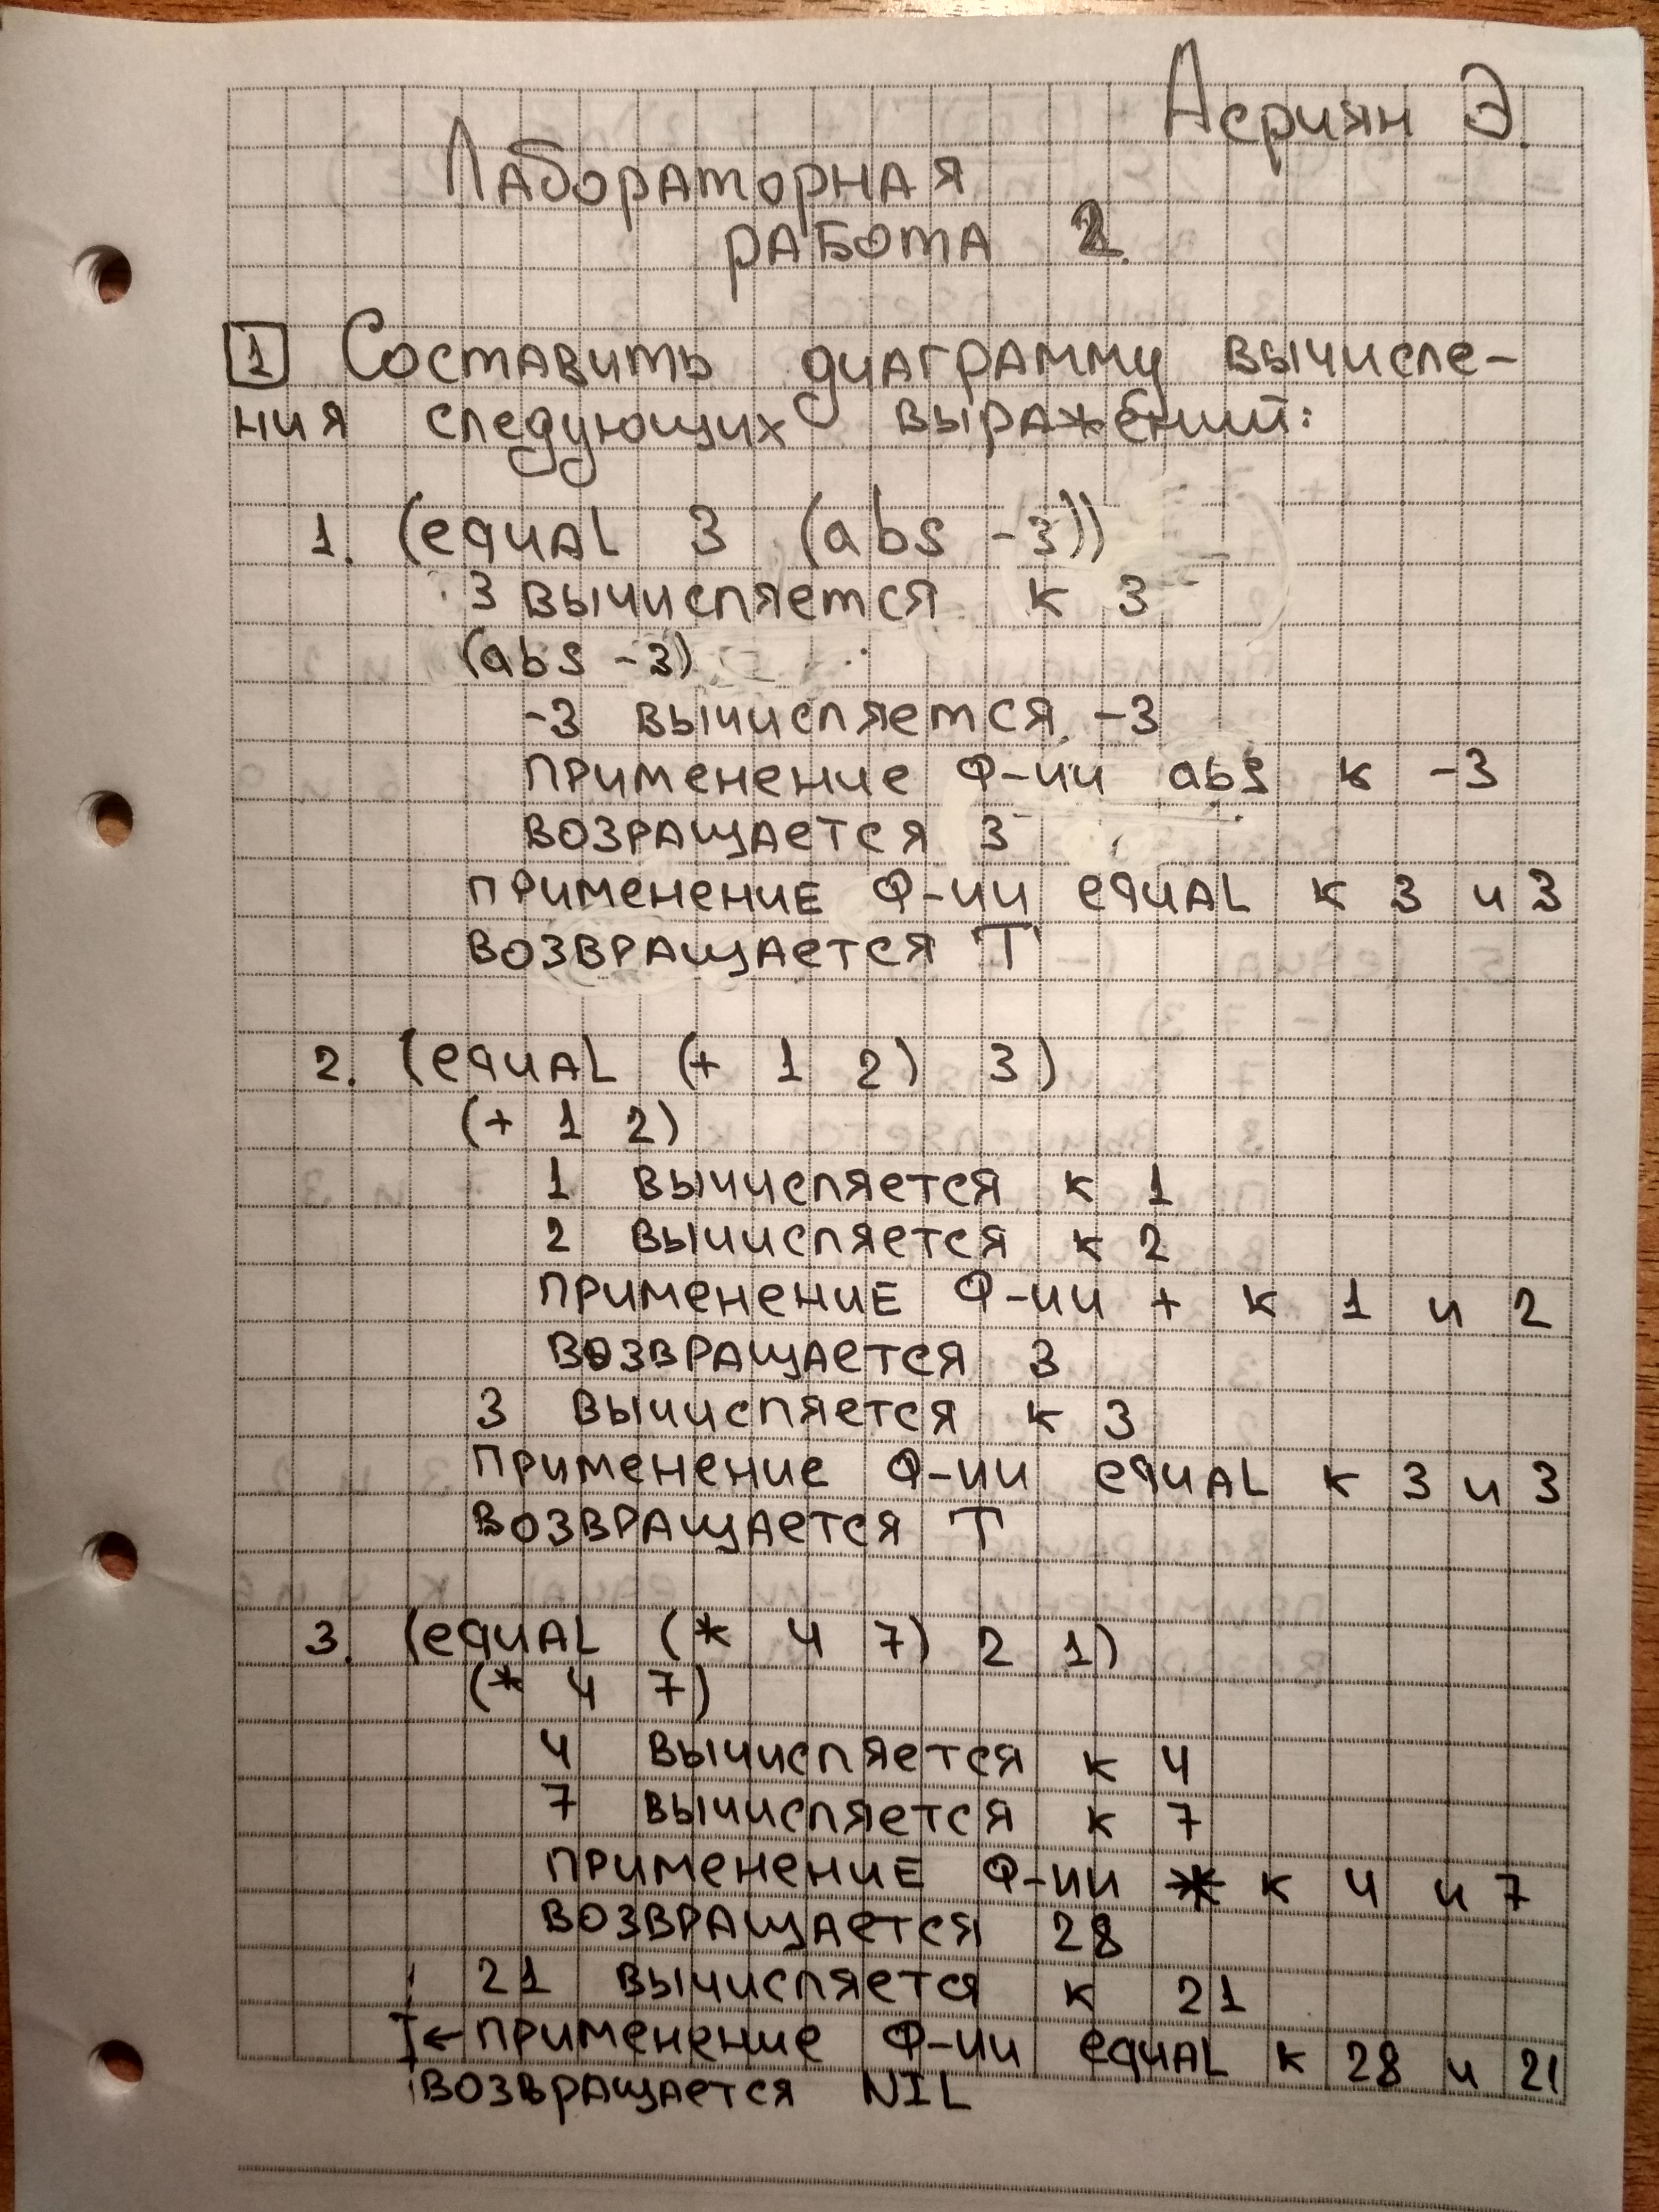 Асриян Э.
Лабораторная
работа 2.
1 Составить диаграмму вычисле-
ния следующих выражений:
1. (equal 3 (abs -3))
3 вычисляется к 3
(abs -3)
-3 вычисляется -3
применение ф-ии abs к -3
возращается 3
применение ф-ии equal к 3 и 3
возвращается T
2. (equal (+ 1 2) 3)
(+ 1 2)
1 вычисляется к 1
2 вычисляется к 2
применение ф-ии + к 1 и 2
возвращается 3
3 вычисляется к 3
применение ф-ии equal к 3 и 3
возвращается T
3. (equal (* 4 7) 2 1)
(* 4 7)
4 вычисляется к 4
7 вычисляется к 7
применение ф-ии * к 4 и 7
возвращается 28
21 вычисляется к 21
← применение ф-ии equal к 28 и 21
возвращается NIL